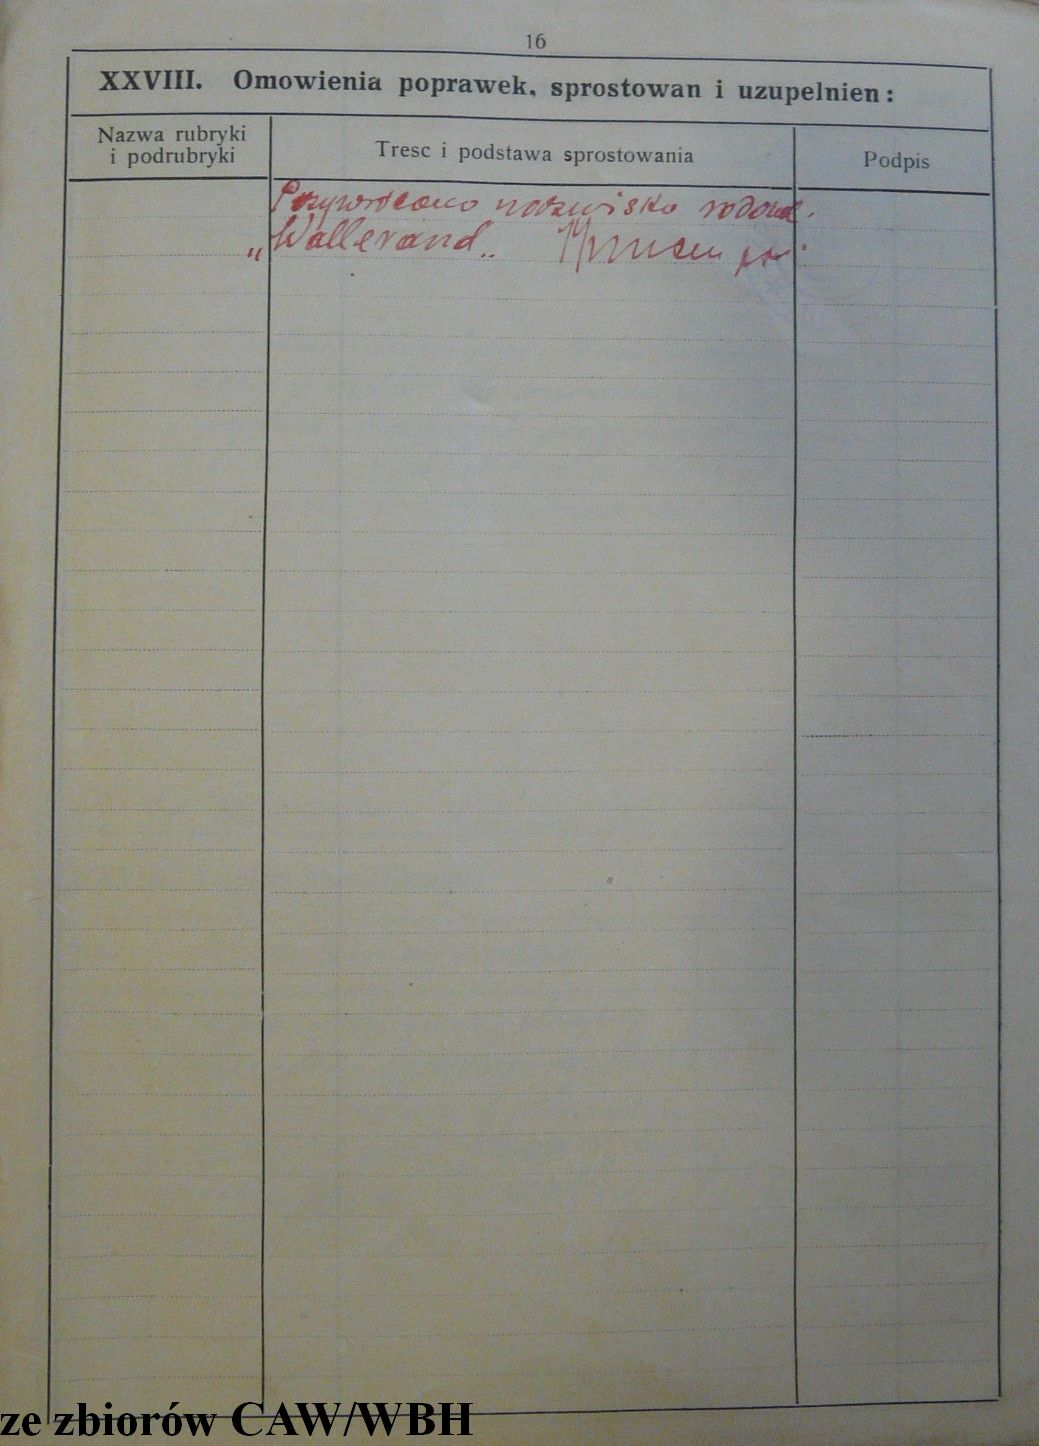 16
XXVIII. Omowienia poprawek, sprostowan i uzupelnien:
Nazwa rubryki
i podrubryki
Tresc i podstawa sprostowania
Podpis
Przywrócono nazwisko rodowe.
„Wallerand„
ze zbiorów CAW/WBH